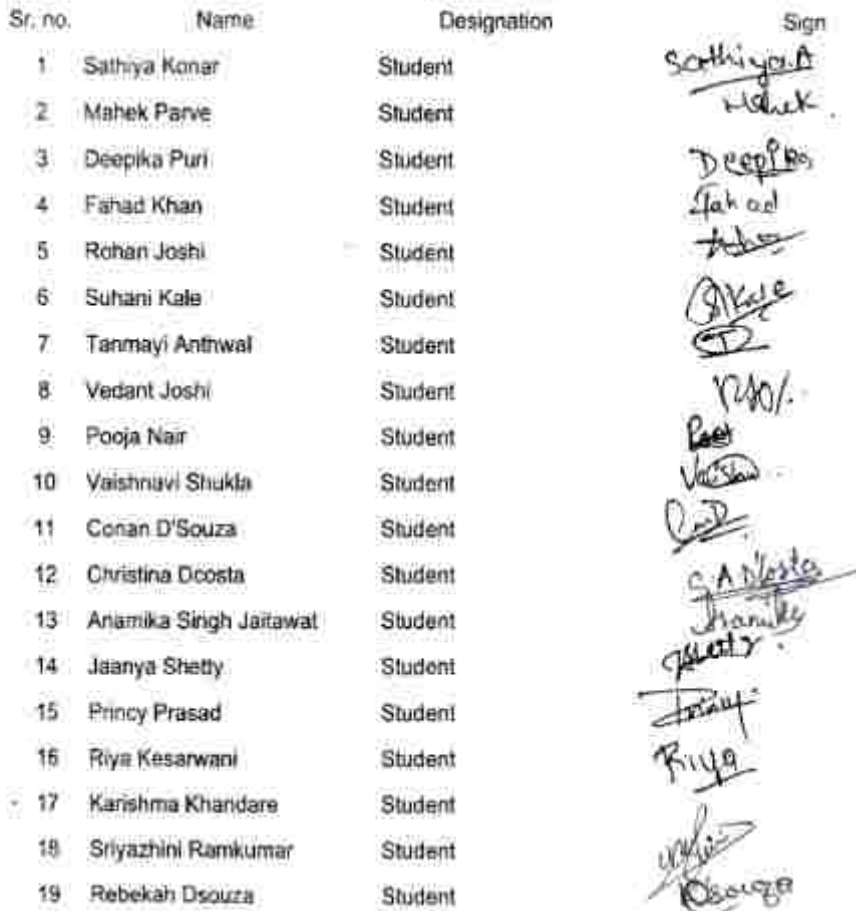 Sr. no. Name Designation Sign
1 Sathiya Konar Student Sathiya.A
2 Mahek Parve Student Mahek.
3 Deepika Puri Student Deepika
4 Fahad Khan Student Fahad
5 Rohan Joshi Student
6 Suhani Kale Student SKale
7 Tanmayi Anthwal Student T
8 Vedant Joshi Student
9 Pooja Nair Student
10 Vaishnavi Shukla Student
11 Conan D'Souza Student
12 Christina Dcosta Student C A D'Costa
13 Anamika Singh Jaitawat Student Anamika
14 Jaanya Shetty Student JShetty.
15 Princy Prasad Student Princy.
16 Riya Kesarwani Student Riya
17 Karishma Khandare Student
18 Sriyazhini Ramkumar Student
19 Rebekah Dsouza Student RDsouza